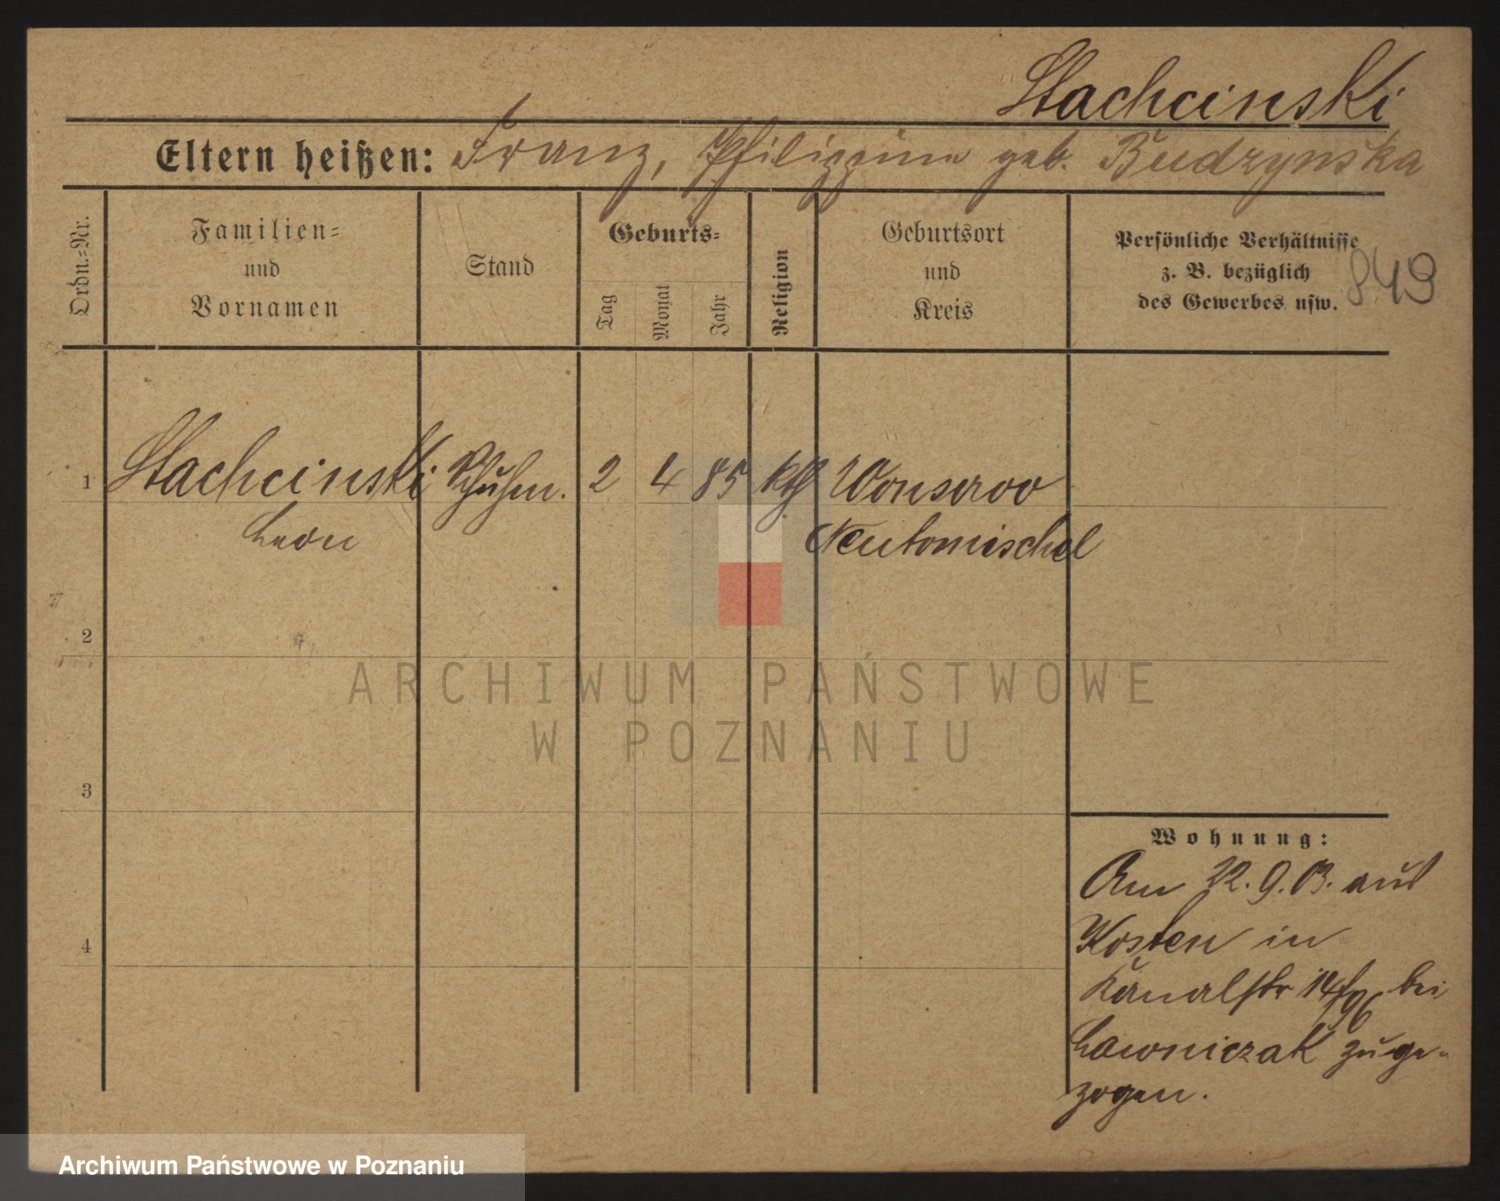 Stachcinski
Eltern heißen: Franz, Philippine geb. Budzynska
Ordn.-Nr.
Familien-
und
Vornamen
Stand
Geburts-
Tag
Monat
Jahr
Religion
Geburtsort
und
Kreis
Persönliche Verhältnisse
z. B. bezüglich
des Gewerbes usw.
849
1
Stachcinski
Leon
Schuhm.
2
4
85
kth
Wonsowo
Neutomischel
2
3
4
Wohnung:
Am 22.9.03. aus
Kosten in
Kanalstr 14/96 bei
Lawniczak zuge-
zogen.
ARCHIWUM PAŃSTWOWE
W POZNANIU
Archiwum Państwowe w Poznaniu